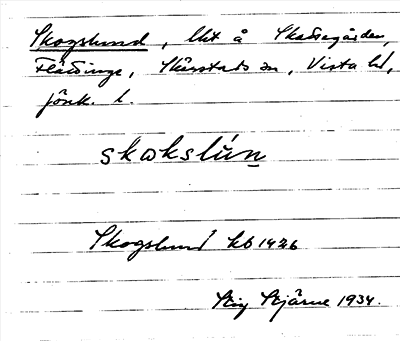 Skogslund, lht å Skattegården,
Flättinge, Skärstads sn, Vista hd,
Jönk. l.
skɷkslún
Skogslund kb 1926
Stig Bjärne 1934.